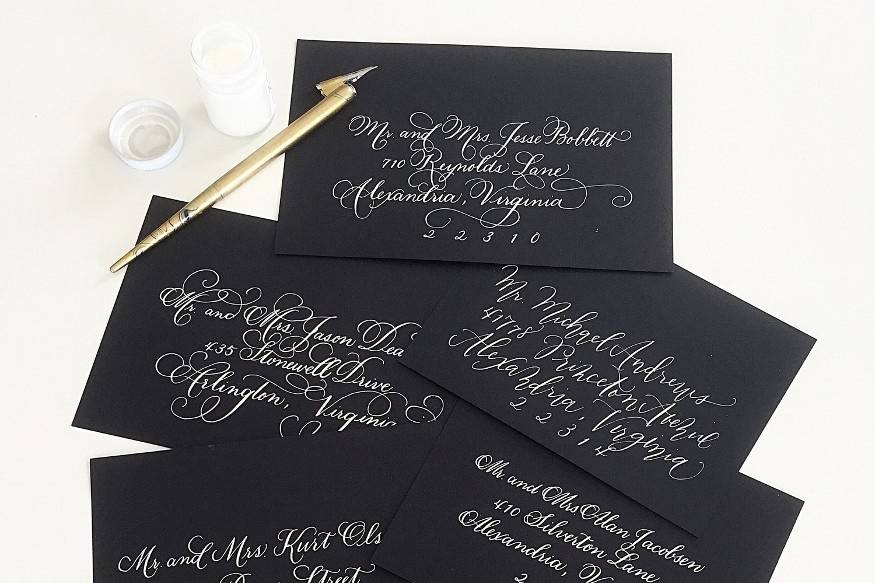 Mr. and Mrs. Jesse Bobbett
710 Reynolds Lane
Alexandria, Virginia
2 2 3 1 0
Mr. and Mrs. Jason Dea
435 Stonewell Drive
Arlington, Virginia
Mr. Michael Andrews
41778 Princeton Avenue
Alexandria, Virginia
2 2 3 1 4
Mr. and Mrs. Kurt Ols
Street
Mr. and Mrs Alan Jacobsen
410 Silverton Lane
Alexandria, Virginia
2